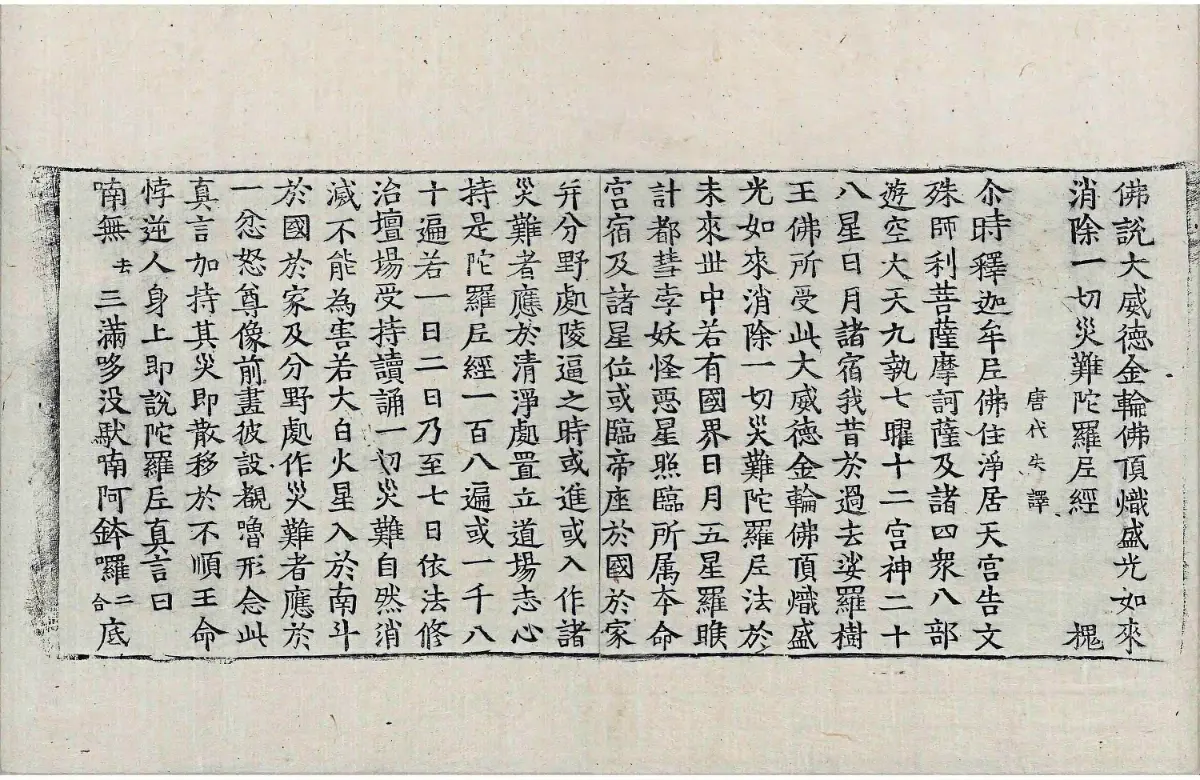 佛說大威德金輪佛頂熾盛光如來
消除一切災難陀羅尼經 槐
唐代失譯
尒時釋迦牟尼佛住淨居天宮告文
殊師利菩薩摩訶薩及諸四衆八部
遊空大天九執七曜十二宮神二十
八星日月諸宿我昔於過去娑羅樹
王佛所受此大威德金輪佛頂熾盛
光如來消除一切災難陀羅尼法於
未來丗中若有國界日月五星羅睺
計都彗孛妖怪惡星照臨所属夲命
宮宿及諸星位或臨帝座於國於家
并分野處陵逼之時或進或入作諸
災難者應於清淨處置立道場志心
持是陀羅尼經一百八遍或一千八
十遍若一日二日乃至七日依法修
治壇場受持讀誦一切災難自然消
滅不能為害若大白火星入於南斗
於國於家及分野處作災難者應於
一忿怒尊像前畫彼設覩嚕形念此
真言加持其災即散移於不順王命
悖逆人身上即說陀羅尼真言曰
喃無去三滿哆没馱喃阿鉢囉二合底